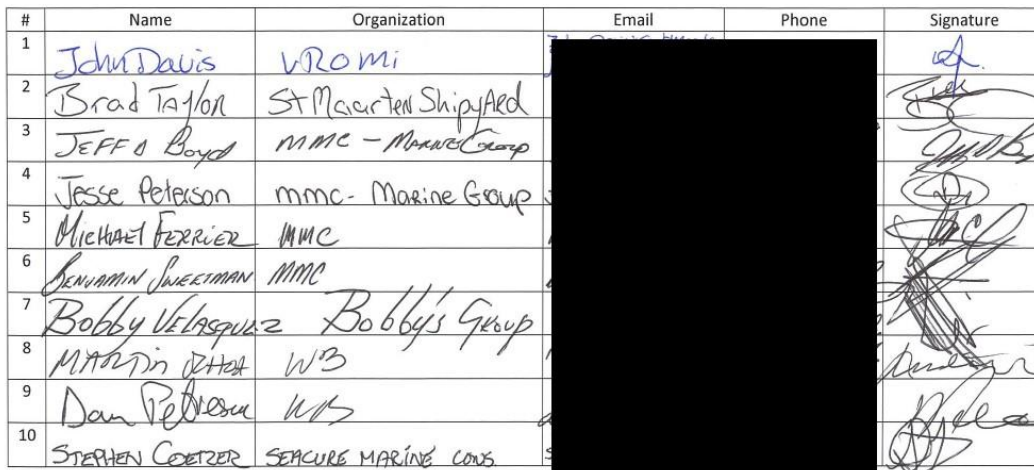 # Name Organization Email Phone Signature
1 John Davis VROMI
2 Brad Taylor St Maarten Shipyard
3 JEFF Boyd MMC - Marine Group
4 Jesse Peterson mmc- Marine Group
5 MICHAEL FERRIER MMC
6 BENJAMIN SWEETMAN MMC
7 Bobby VELASQUEZ Bobby's Group
8 MARTIN WB
9 Dan Petrescu WB
10 STEPHEN COETZER SEACURE MARINE CONS.